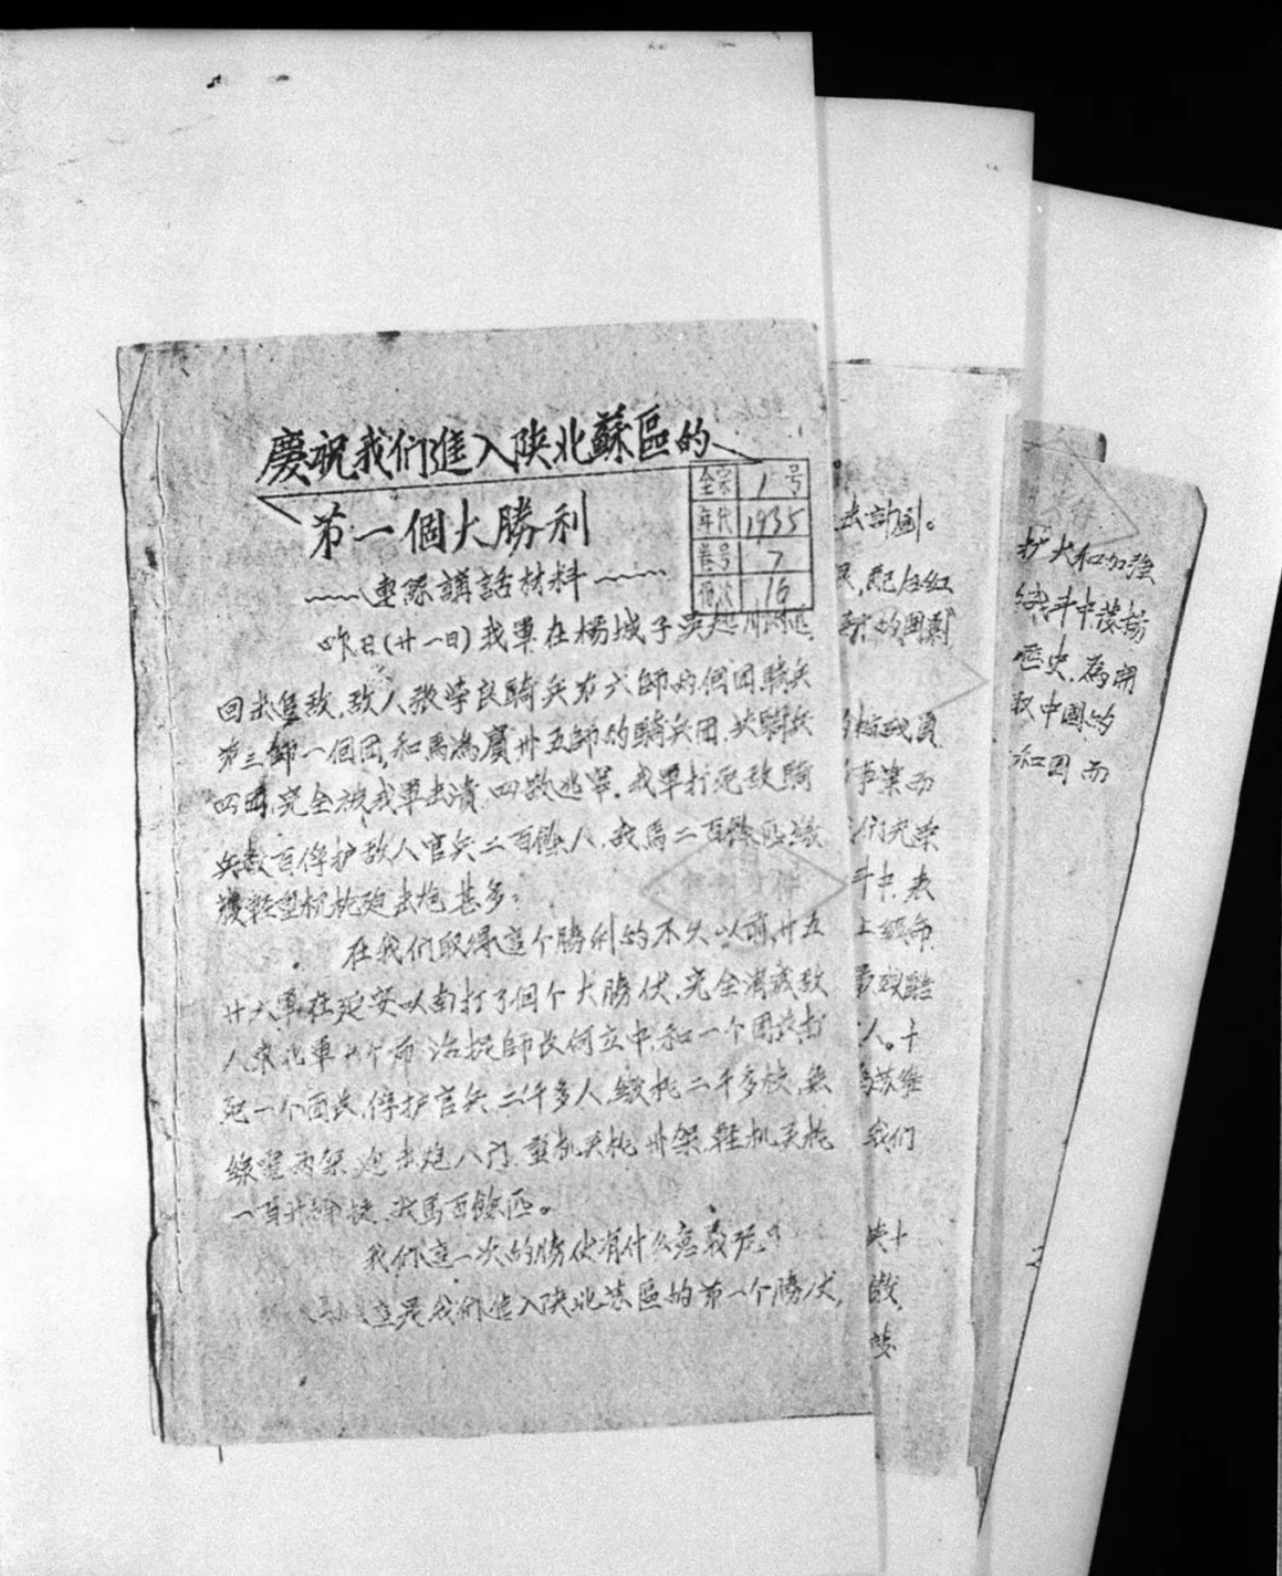 慶祝我们進入陕北蘇區的
第一個大勝利
連隊講話材料
全宗 1号
年代 1935
卷号 7
份次 16
昨日(廿一日)我軍在楊城子吳起
回击隻敌,敌人張學良騎兵第六師两個团騎兵
第三師一個团,和馬鴻賓卅五師的騎兵团,共騎兵
四团,完全被我軍击潰,四散逃竄。我軍打死敌騎
兵数百俘护敌人官兵二百餘人,战馬二百餘匹繳
獲輕重机枪迫击炮甚多。
在我们取得這个勝利的不久以前,廿五
廿六軍在延安以南打了個个大勝仗,完全消滅敌
人東北軍 師 活捉師長何立中,和一个团長,打
死一个团長,俘护官兵二千多人,繳枪二千多枝,無
線電两架,迫击炮八门,重机关枪卅架,輕机关枪
一百 枝,战馬百餘匹。
我们這一次的勝仗有什么意義呢?
這是我们進入陕北苏區的第一个勝仗,
击計劃。
民,配合红
的圍剿
指战員
事業而
们光荣
斗中,表
上級命
人。十
苏维
我们
扩大和加強
战斗中發揚
歷史,為開
取中國的
和团 而